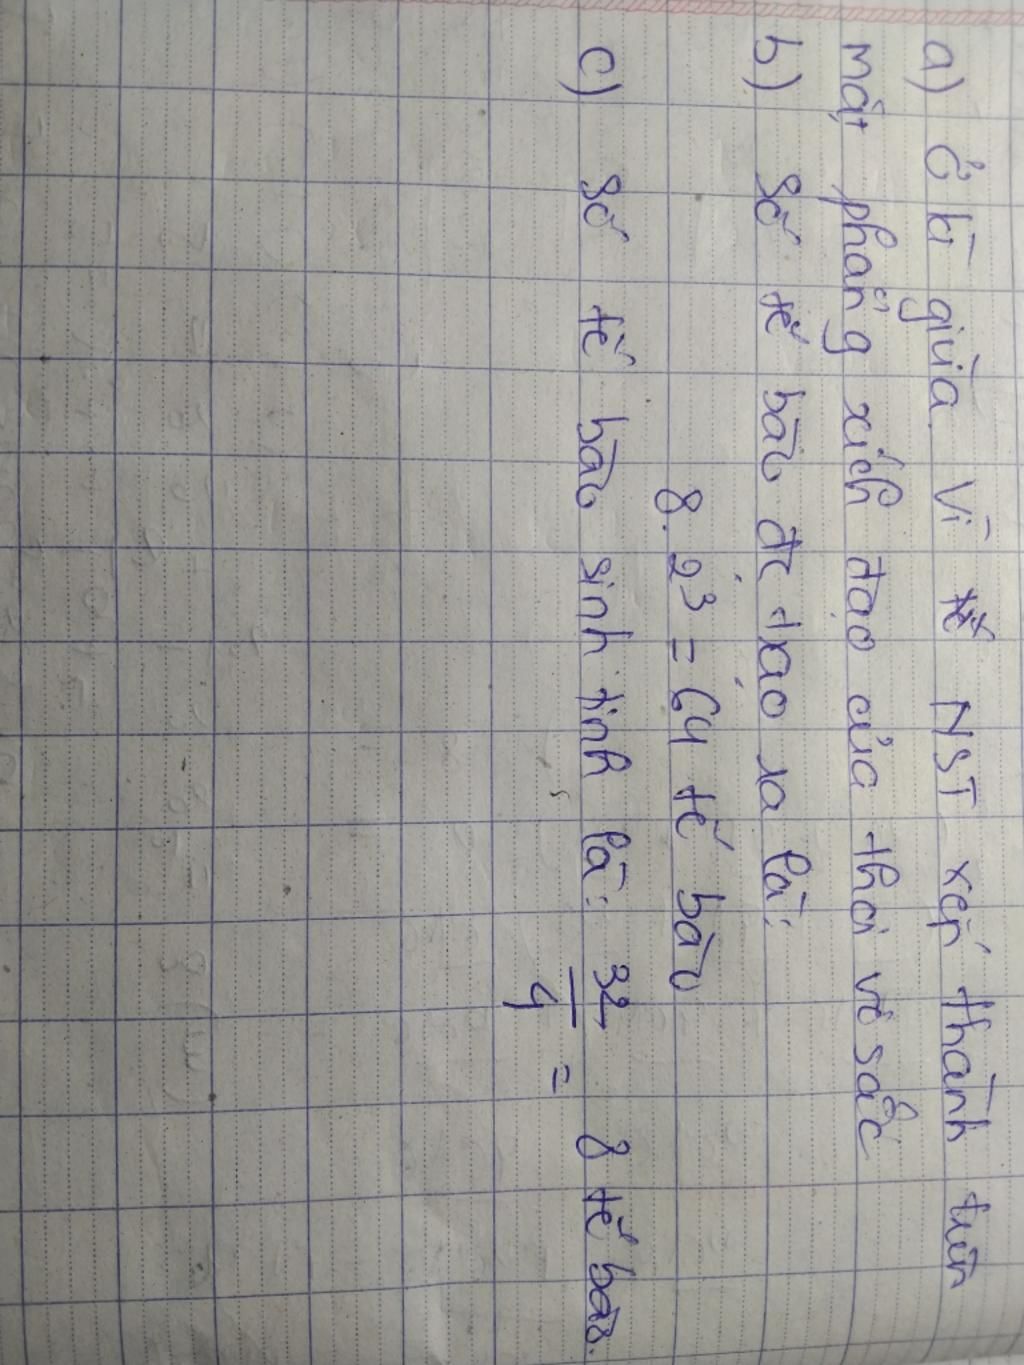 a) Ở kì giữa. Vì NST xếp thành trên
mặt phẳng xích đạo của thoi vô sắc
b) Số tế bào đc tạo ra là:
8. 2³ = 64 tế bào
c) Số tế bào sinh tinh là: 32/4 = 8 tế bào.